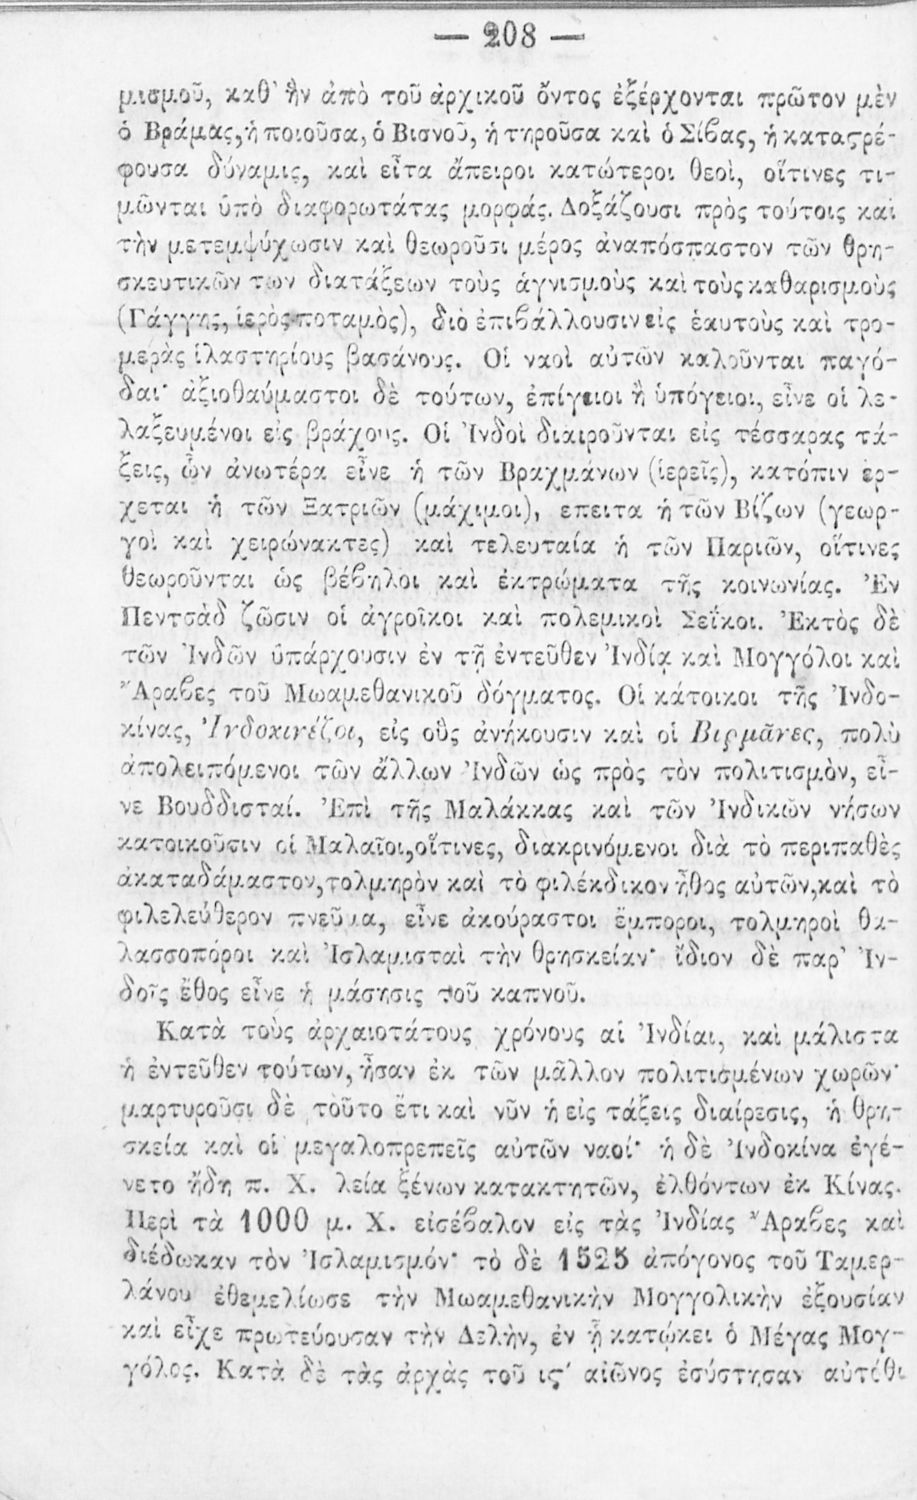 — 208 —
μισμοῦ, καθ' ἣν ἀπὸ τοῦ ἀρχικοῦ ὄντος ἐξέρχονται πρῶτον μὲν
ὁ Βράμας, ἡ ποιοῦσα, ὁ Βισνοῦ, ἡ τηροῦσα καὶ ὁ Σίβας, ἡ καταστρέ-
φουσα δύναμις, καὶ εἶτα ἄπειροι κατώτεροι θεοὶ, οἵτινες τι-
μῶνται ὑπὸ διαφορωτάτας μορφάς. Δοξάζουσι πρὸς τούτοις καὶ
τὴν μετεμψύχωσιν καὶ θεωροῦσι μέρος ἀναπόσπαστον τῶν θρη-
σκευτικῶν των διατάξεων τοὺς ἁγνισμοὺς καὶ τοὺς καθαρισμοὺς
(Γάγγης, ἱερὸς ποταμὸς), διὸ ἐπιβάλλουσιν εἰς ἑαυτοὺς καὶ τρο-
μερὰς ἱλαστηρίους βασάνους. Οἱ ναοὶ αὐτῶν καλοῦνται παγό-
δαι· ἀξιοθαύμαστοι δὲ τούτων, ἐπίγειοι ἢ ὑπόγειοι, εἶνε οἱ λε-
λαξευμένοι εἰς βράχους. Οἱ Ἰνδοὶ διαιροῦνται εἰς τέσσαρας τά-
ξεις, ὧν ἀνωτέρα εἶνε ἡ τῶν Βραχμάνων (ἱερεῖς), κατόπιν ἔρ-
χεται ἡ τῶν Ξατριῶν (μάχιμοι), επειτα ἡ τῶν Βίζων (γεωρ-
γοὶ καὶ χειρώνακτες) καὶ τελευταία ἡ τῶν Παριῶν, οἵτινες
θεωροῦνται ὡς βέβηλοι καὶ ἐκτρώματα τῆς κοινωνίας. Ἐν
Πεντσὰδ ζῶσιν οἱ ἀγροῖκοι καὶ πολεμικοὶ Σεΐκοι. Ἐκτὸς δὲ
τῶν Ἰνδῶν ὑπάρχουσιν ἐν τῇ ἐντεῦθεν Ἰνδίᾳ καὶ Μογγόλοι καὶ
Ἄραβες τοῦ Μωαμεθανικοῦ δόγματος. Οἱ κάτοικοι τῆς Ἰνδο-
κίνας, Ἰνδοκινέζοι, εἰς οὓς ἀνήκουσιν καὶ οἱ Βιρμᾶνες, πολὺ
ἀπολειπόμενοι τῶν ἄλλων Ἰνδῶν ὡς πρὸς τὸν πολιτισμὸν, εἶ-
νε Βουδδισταί. Ἐπὶ τῆς Μαλάκκας καὶ τῶν Ἰνδικῶν νήσων
κατοικοῦσιν οἱ Μαλαῖοι, οἵτινες, διακρινόμενοι διὰ τὸ περιπαθὲς
ἀκαταδάμαστον, τολμηρὸν καὶ τὸ φιλέκδικον ἦθος αὐτῶν, καὶ τὸ
φιλελεύθερον πνεῦμα, εἶνε ἀκούραστοι ἔμποροι, τολμηροὶ θα-
λασσοπόροι καὶ Ἰσλαμισταὶ τὴν θρησκείαν· ἴδιον δὲ παρ' Ἰν-
δοῖς ἔθος εἶνε ἡ μάσησις τοῦ καπνοῦ.
Κατὰ τοὺς ἀρχαιοτάτους χρόνους αἱ Ἰνδίαι, καὶ μάλιστα
ἡ ἐντεῦθεν τούτων, ἦσαν ἐκ τῶν μᾶλλον πολιτισμένων χωρῶν·
μαρτυροῦσι δὲ τοῦτο ἔτι καὶ νῦν ἡ εἰς τάξεις διαίρεσις, ἡ θρη-
σκεία καὶ οἱ μεγαλοπρεπεῖς αὐτῶν ναοί· ἡ δὲ Ἰνδοκίνα ἐγέ-
νετο ἤδη π. Χ. λεία ξένων κατακτητῶν, ἐλθόντων ἐκ Κίνας.
Περὶ τὰ 1000 μ. Χ. εἰσέβαλον εἰς τὰς Ἰνδίας Ἄραβες καὶ
διέδωκαν τὸν Ἰσλαμισμόν· τὸ δὲ 1525 ἀπόγονος τοῦ Ταμερ-
λάνου ἐθεμελίωσε τὴν Μωαμεθανικὴν Μογγολικὴν ἐξουσίαν
καὶ εἶχε πρωτεύουσαν τὴν Δελὴν, ἐν ᾗ κατῴκει ὁ Μέγας Μογ-
γόλος. Κατὰ δὲ τὰς ἀρχὰς τοῦ ις' αἰῶνος ἐσύστησαν αὐτόθι